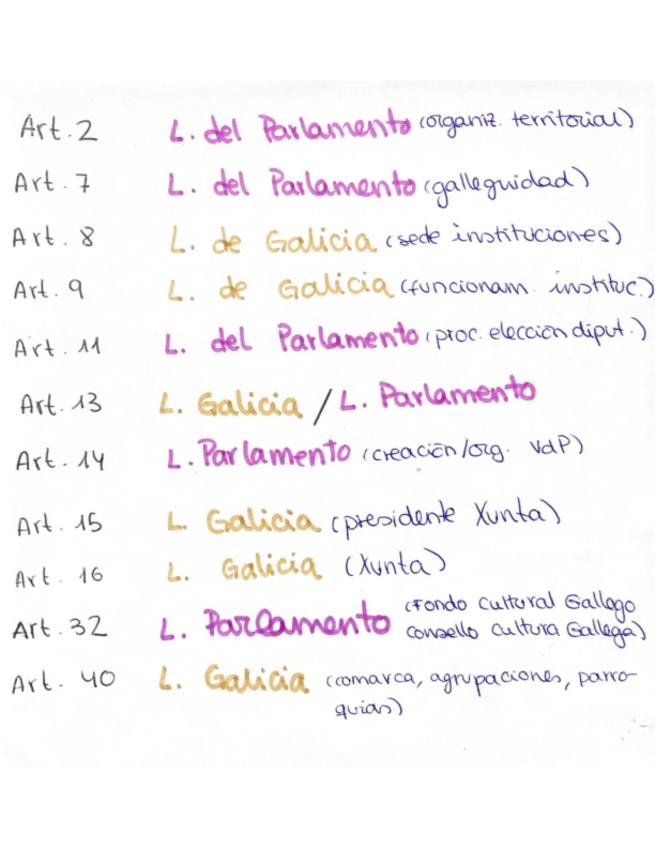 Art. 2 L. del Parlamento (organiz. territorial)
Art. 7 L. del Parlamento (galleguidad)
Art. 8 L. de Galicia (sede instituciones)
Art. 9 L. de Galicia (funcionam. instituc.)
Art. 11 L. del Parlamento (proc. elección diput.)
Art. 13 L. Galicia / L. Parlamento
Art. 14 L. Parlamento (creación/org. VdP)
Art. 15 L. Galicia (presidente Xunta)
Art. 16 L. Galicia (Xunta)
Art. 32 L. Parlamento (Fondo Cultural Gallego
Consello Cultura Gallega)
Art. 40 L. Galicia (comarca, agrupaciones, parro-
quias)